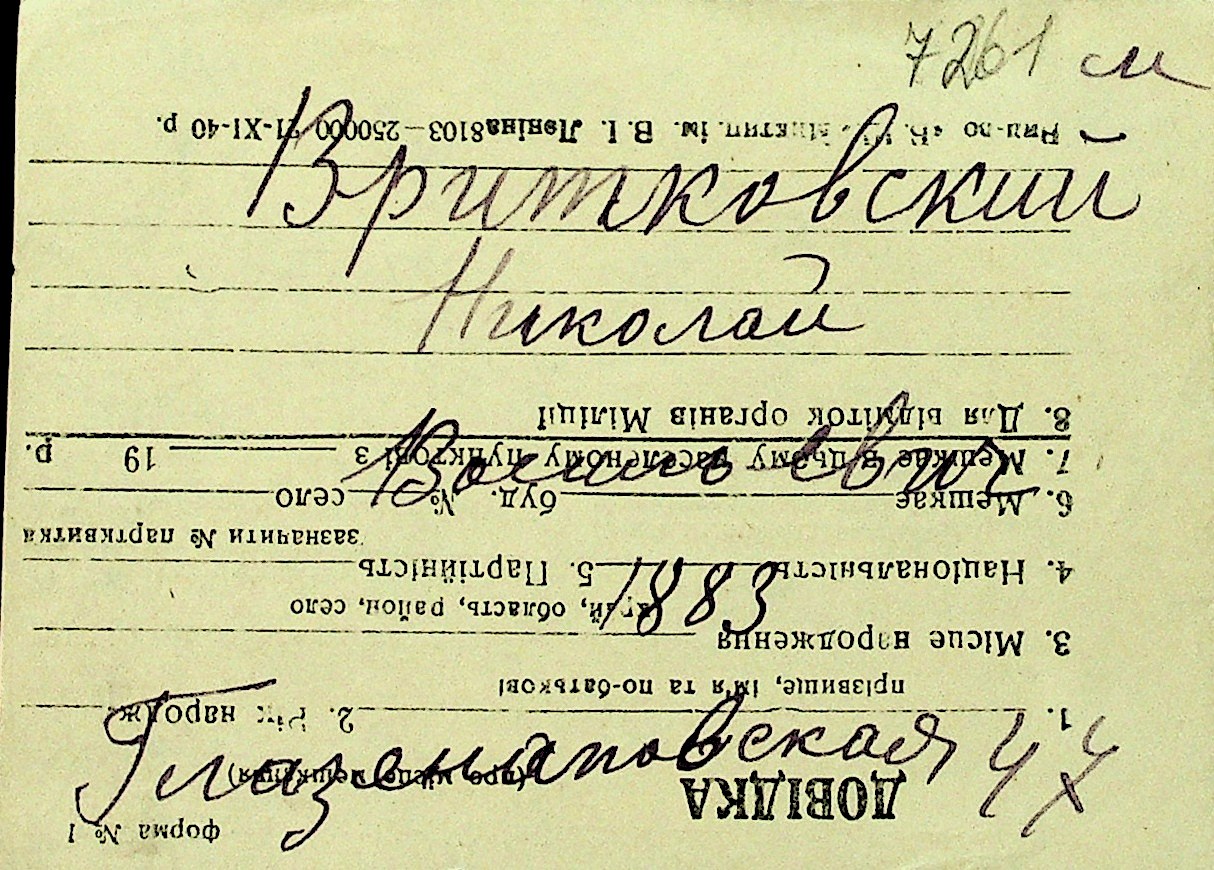 7261 м
Вритковский
Николай
Васильевич
1883
Глазенаповская 47
Форма № 1
ДОВІДКА
(про місце мешкання)
1. 2. Рік народж.
прізвище, ім'я та по-батькові
3. Місце народження
край, область, район, село
4. Національність 5. Партійність
зазначити № партквитка
6. Мешкає буд. № село
7. Мешкає в цьому населеному пунктові з 19 р.
8. Для відміток органів Міліції
ім. В. І. Леніна 8103—250000 21-XI-40 р.